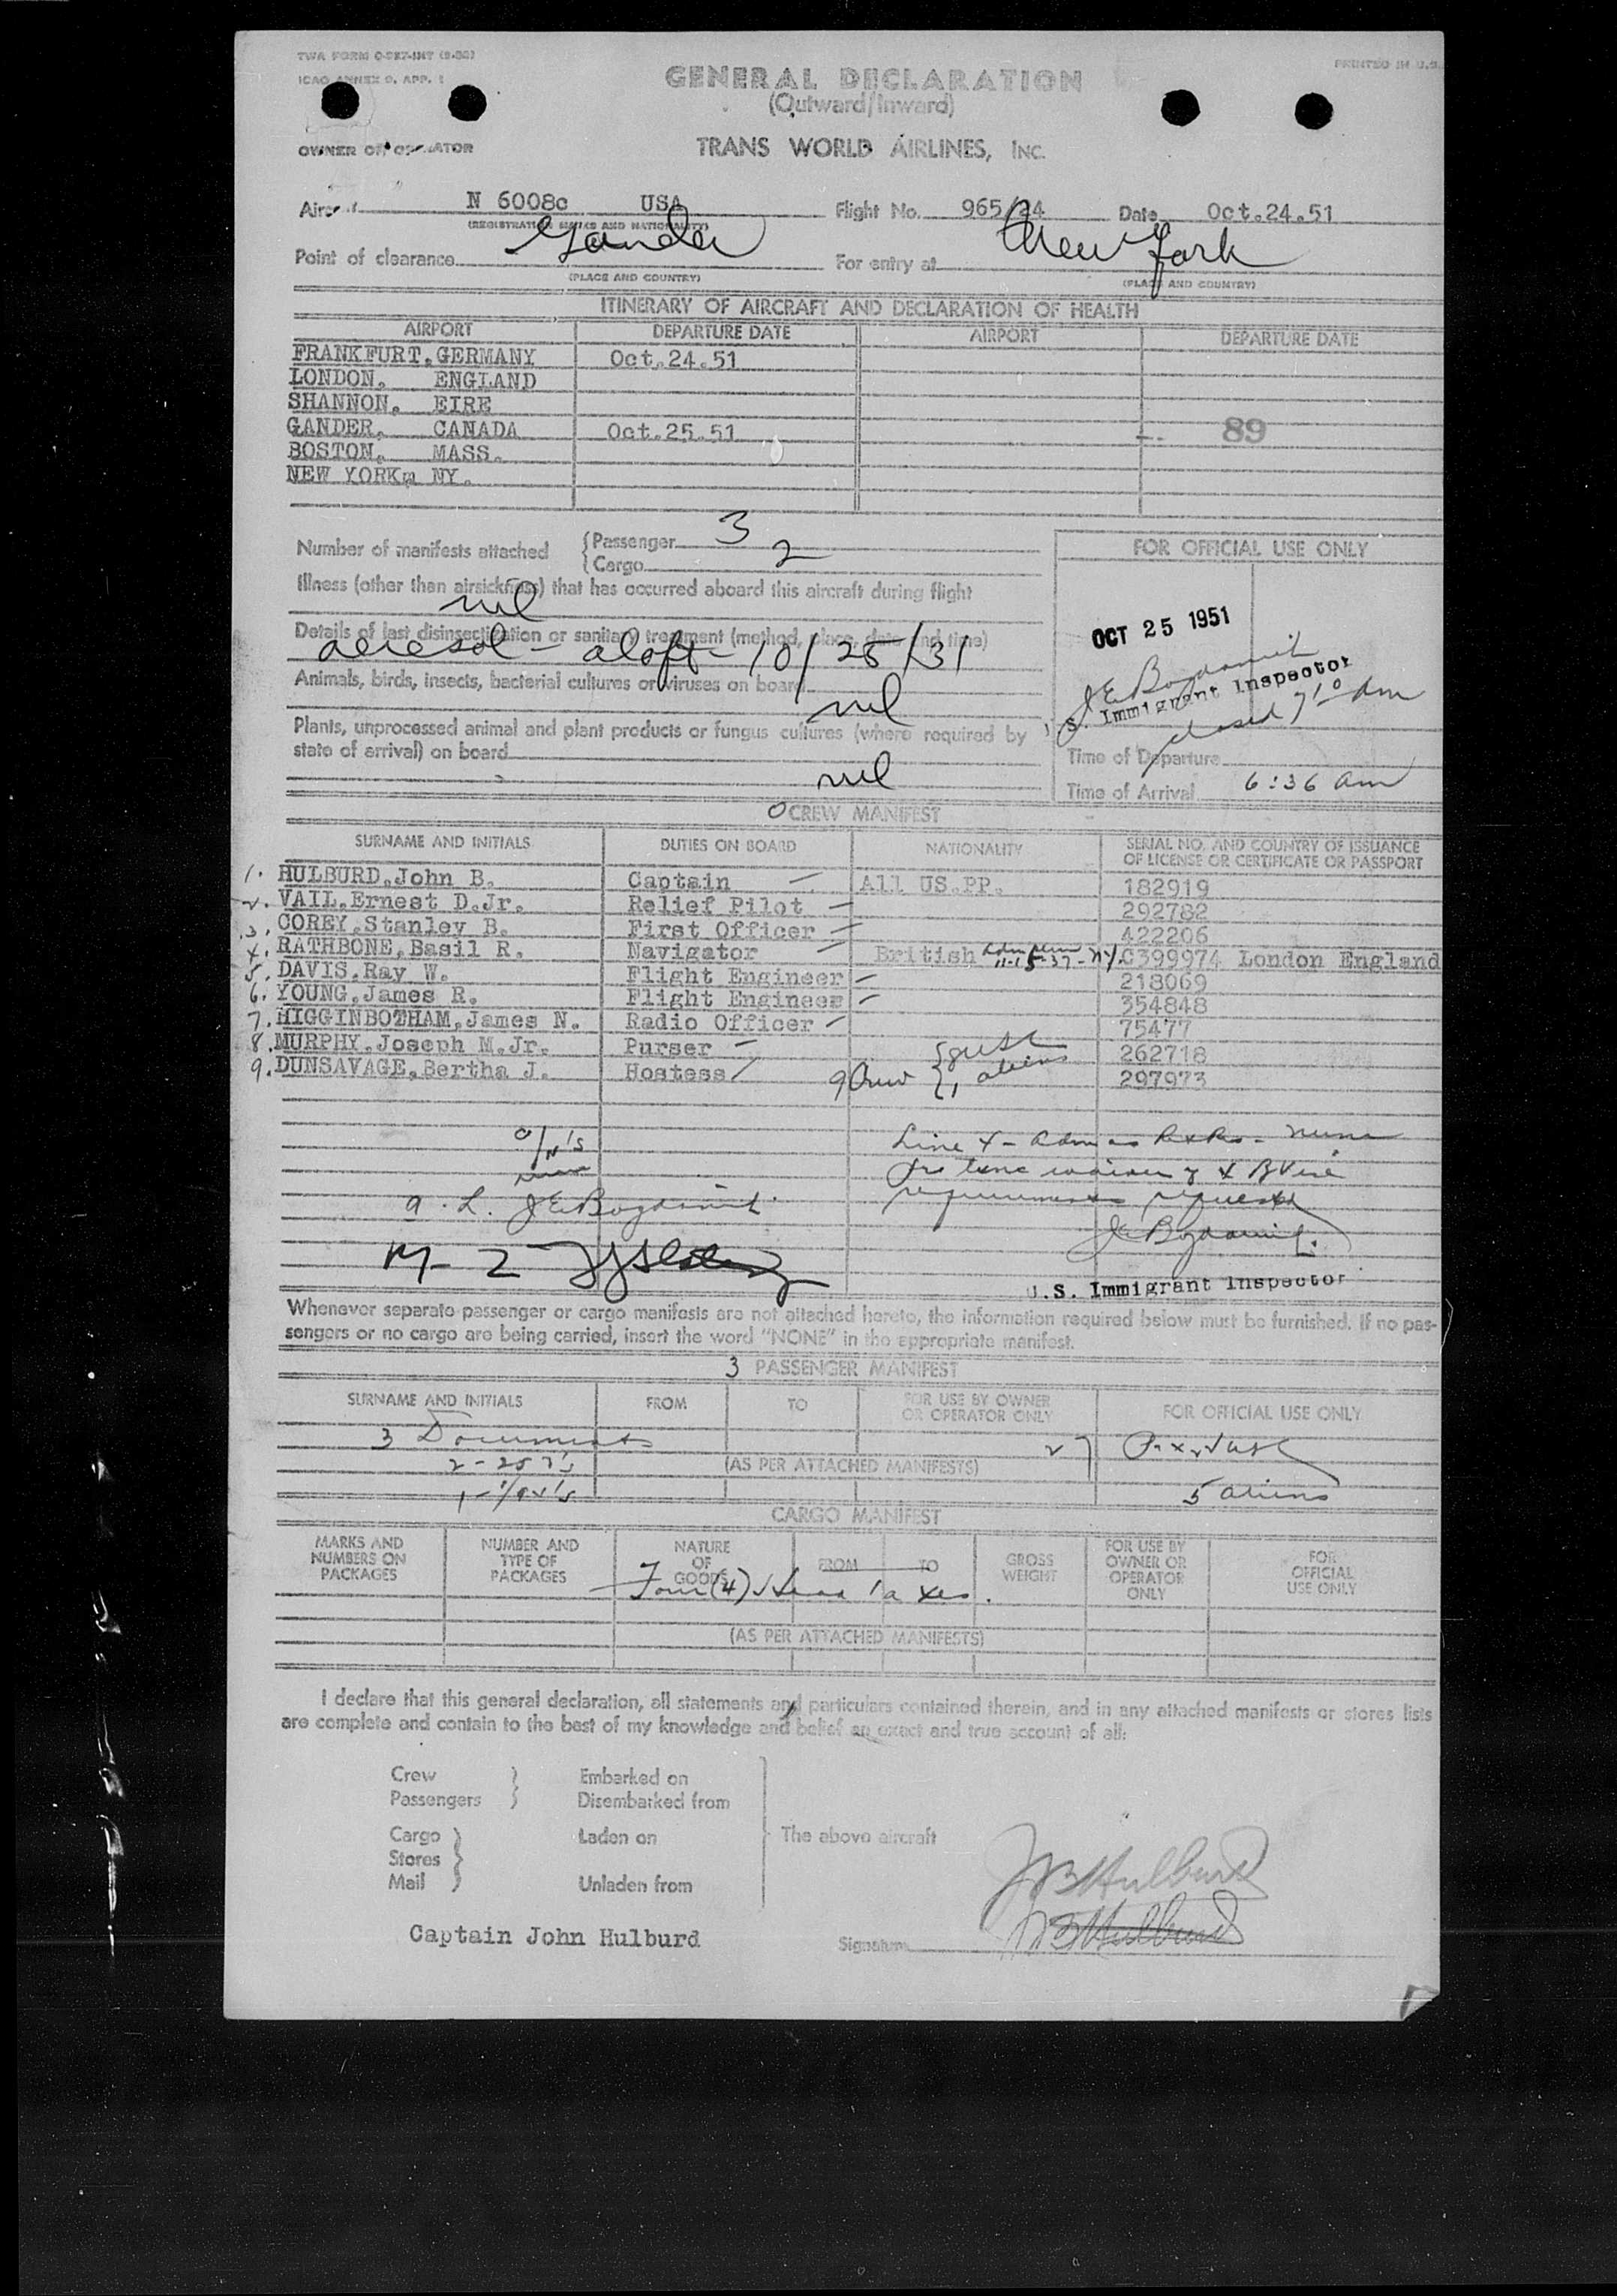 TWA FORM O-927-INT (9-50)
PRINTED IN U.S.
ICAO ANNEX 9, APP. 1
GENERAL DECLARATION
(Outward/Inward)
OWNER OR OPERATOR
TRANS WORLD AIRLINES, INC.
Aircraft N 6008c USA Flight No. 965/24 Date Oct.24.51
(REGISTRATION MARKS AND NATIONALITY)
Point of clearance Gander For entry at New York
(PLACE AND COUNTRY) (PLACE AND COUNTRY)
ITINERARY OF AIRCRAFT AND DECLARATION OF HEALTH
AIRPORT DEPARTURE DATE AIRPORT DEPARTURE DATE
FRANKFURT.GERMANY Oct.24.51
LONDON. ENGLAND
SHANNON. EIRE
GANDER. CANADA Oct.25.51 89
BOSTON. MASS.
NEW YORK NY.
Number of manifests attached
Passenger 3
Cargo 2
FOR OFFICIAL USE ONLY
Illness (other than airsickness) that has occurred aboard this aircraft during flight
nil
Details of last disinsectization or sanitary treatment (method, place, date and time)
aeresol - aloft - 10/25/51
Animals, birds, insects, bacterial cultures or viruses on board
nil
Plants, unprocessed animal and plant products or fungus cultures (where required by
state of arrival) on board
nil
OCT 25 1951
S. Immigrant Inspector
closed 7 10 am
Time of Departure
Time of Arrival 6:36 am
CREW MANIFEST
SURNAME AND INITIALS DUTIES ON BOARD NATIONALITY SERIAL NO. AND COUNTRY OF ISSUANCE
OF LICENSE OR CERTIFICATE OR PASSPORT
1. HULBURD.John B. Captain All US.PP. 182919
2. VAIL.Ernest D.Jr. Relief Pilot 292782
3. COREY.Stanley B. First Officer 422206
4. RATHBONE.Basil R. Navigator British C399974 London England
5. DAVIS.Ray W. Flight Engineer 218069
6. YOUNG.James R. Flight Engineer 354848
7. HIGGINBOTHAM.James N. Radio Officer 75477
8. MURPHY.Joseph M.Jr. Purser 262718
9. DUNSAVAGE.Bertha J. Hostess 297973
9 Crew
1 aliens
U.S. Immigrant Inspector
Whenever separate passenger or cargo manifests are not attached hereto, the information required below must be furnished. If no pas-
sengers or no cargo are being carried, insert the word "NONE" in the appropriate manifest.
3 PASSENGER MANIFEST
SURNAME AND INITIALS FROM TO FOR USE BY OWNER
OR OPERATOR ONLY FOR OFFICIAL USE ONLY
3 Documents
(AS PER ATTACHED MANIFESTS)
5 aliens
CARGO MANIFEST
MARKS AND
NUMBERS ON
PACKAGES
NUMBER AND
TYPE OF
PACKAGES
NATURE
OF
GOODS
FROM TO
GROSS
WEIGHT
FOR USE BY
OWNER OR
OPERATOR
ONLY
FOR
OFFICIAL
USE ONLY
Four (4)
(AS PER ATTACHED MANIFESTS)
I declare that this general declaration, all statements and particulars contained therein, and in any attached manifests or stores lists
are complete and contain to the best of my knowledge and belief an exact and true account of all:
Crew Embarked on
Passengers Disembarked from
Cargo Laden on The above aircraft
Stores
Mail Unladen from
JB Hulburd
Captain John Hulburd
Signature JB Hulburd